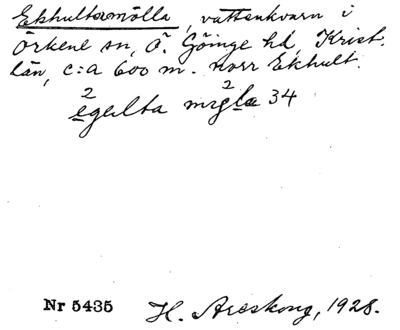 Ekhultamölla, vattenkvarn i
Örkene sn, Ö. Göinge hd, Krist.
län, c:a 600 m. norr Ekhult.
2 2
egulta mgla 34
Nr 5435 H. Areskoug, 1928.